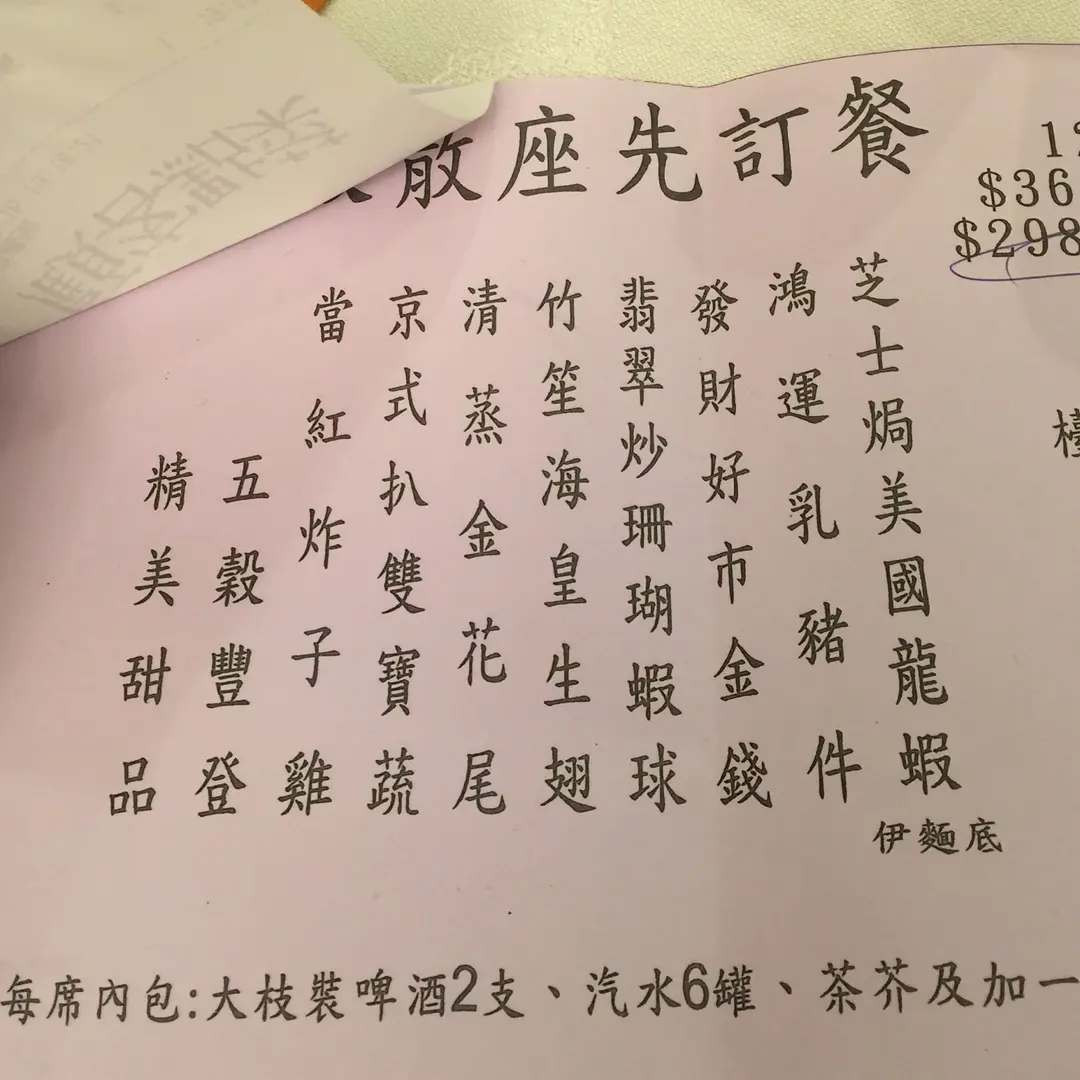 散座先訂餐
$36
$298
芝士焗美國龍蝦
伊麵底
鴻運乳豬件
發財好市金錢
翡翠炒珊瑚蝦球
竹笙海皇生翅
清蒸金花尾
京式扒雙寶蔬
當紅炸子雞
五穀豐登
精美甜品
每席內包:大枝裝啤酒2支、汽水6罐、茶芥及加一